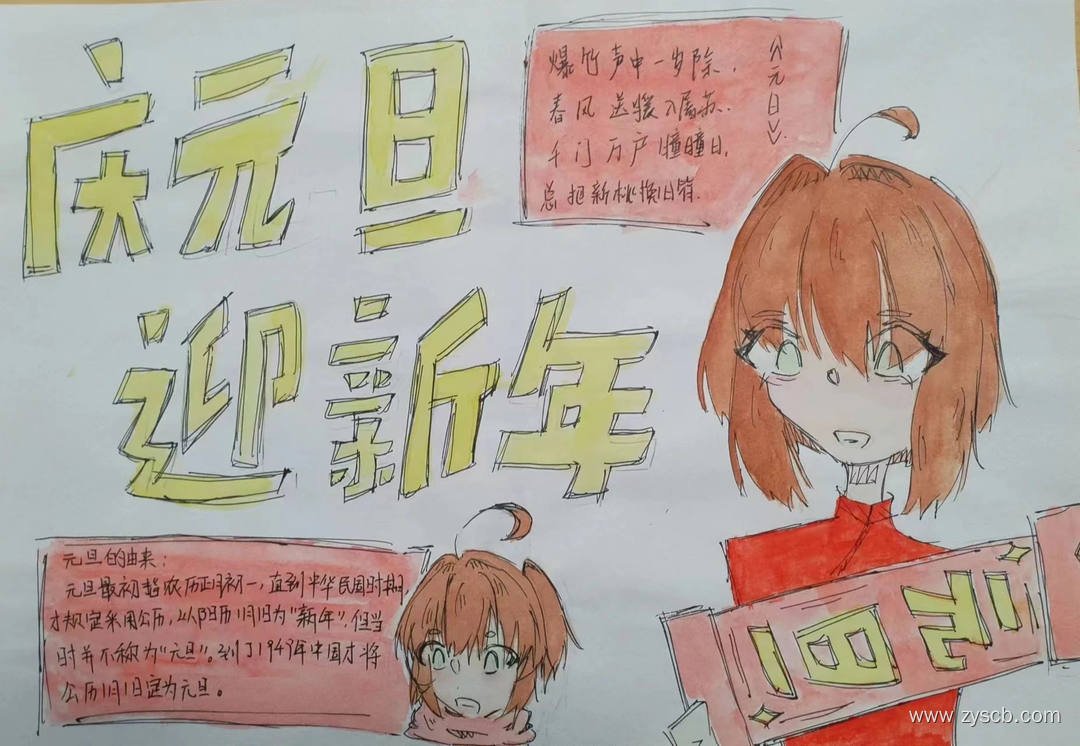 庆元旦
迎新年
《元日》
爆竹声中一岁除,
春风送暖入屠苏.
千门万户瞳瞳日,
总把新桃换旧符.
元旦的由来:
元旦最初指农历正月初一,直到中华民国时期
才规定采用公历,以阳历1月1日为"新年",但当
时并不称为"元旦"。到了1949年中国才将
公历1月1日定为元旦。
元旦
www.zyscb.com